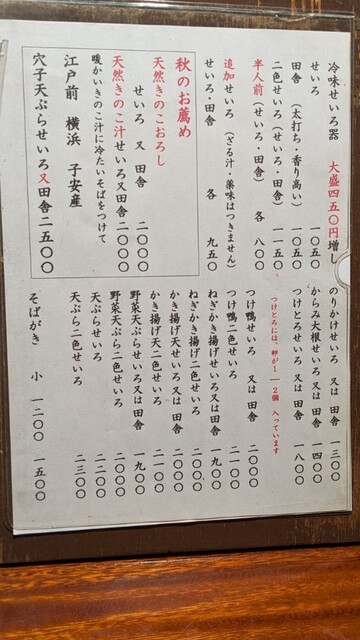 冷味せいろ器 大盛四五〇円増し
せいろ 一〇五〇
田舎 (太打ち・香り高い) 一〇五〇
二色せいろ (せいろ・田舎) 一一五〇
半人前 (せいろ・田舎) 各 八〇〇
追加せいろ (ざる汁・薬味はつきません)
せいろ・田舎 各 九五〇
秋のお薦め
天然きのこおろし
せいろ 又 田舎 二〇〇〇
天然きのこ汁せいろ又田舎二〇〇〇
暖かいきのこ汁に冷たいそばをつけて
江戸前 横浜 子安産
穴子天ぷらせいろ又田舎二五〇〇
のりかけせいろ 又は 田舎 一三〇〇
からみ大根せいろ又は 田舎 一四〇〇
つけとろせいろ 又は 田舎 一八〇〇
つけとろには、卵が1―2個 入っています
つけ鴨せいろ 又は 田舎 二〇〇〇
つけ鴨二色せいろ 二一〇〇
ねぎかき揚げせいろ又は田舎 一九〇〇
ねぎかき揚げ二色せいろ 二〇〇〇
かき揚げ天せいろ又は 田舎 二〇〇〇
かき揚げ天二色せいろ 二一〇〇
野菜天ぷらせいろ又は田舎 一九〇〇
野菜天ぷら二色せいろ 二〇〇〇
天ぷらせいろ 二二〇〇
天ぷら二色せいろ 二三〇〇
そばがき 小 一二〇〇 一五〇〇